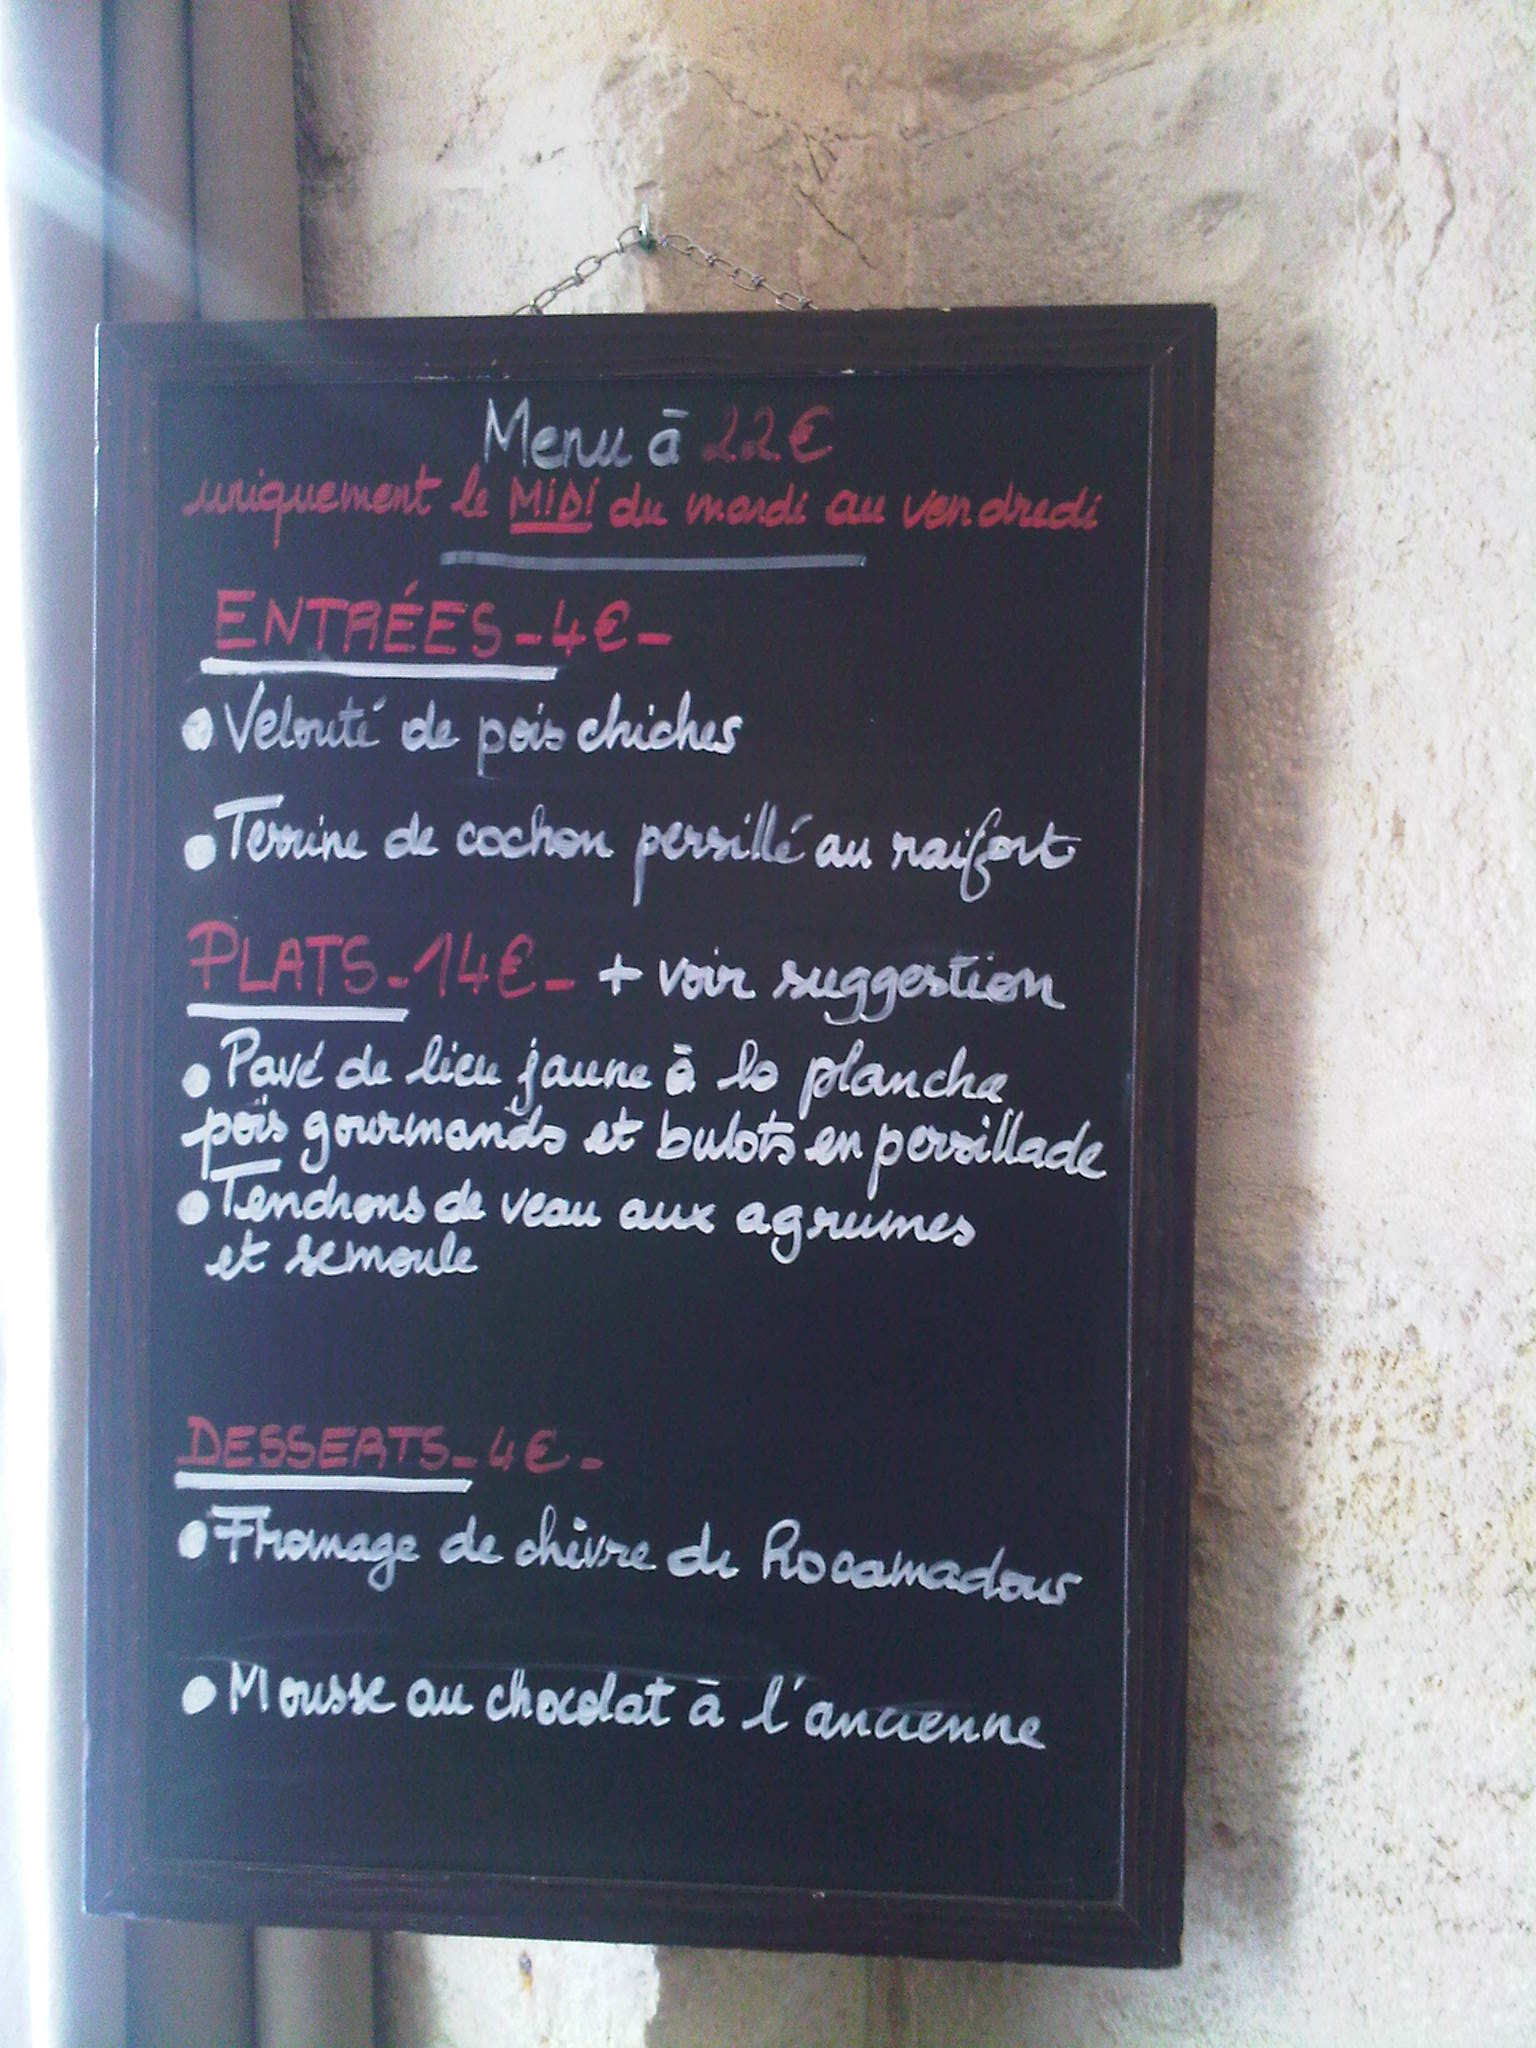 Menu à 22€
uniquement le MIDI du mardi au vendredi
ENTRÉES - 4€ -
• Velouté de pois chiches
• Terrine de cochon persillé au raifort
PLATS - 14€ - + voir suggestion
• Pavé de lieu jaune à la plancha
pois gourmands et bulots en persillade
• Tendrons de veau aux agrumes
et semoule
DESSERTS - 4€ -
• Fromage de chèvre de Rocamadour
• Mousse au chocolat à l'ancienne